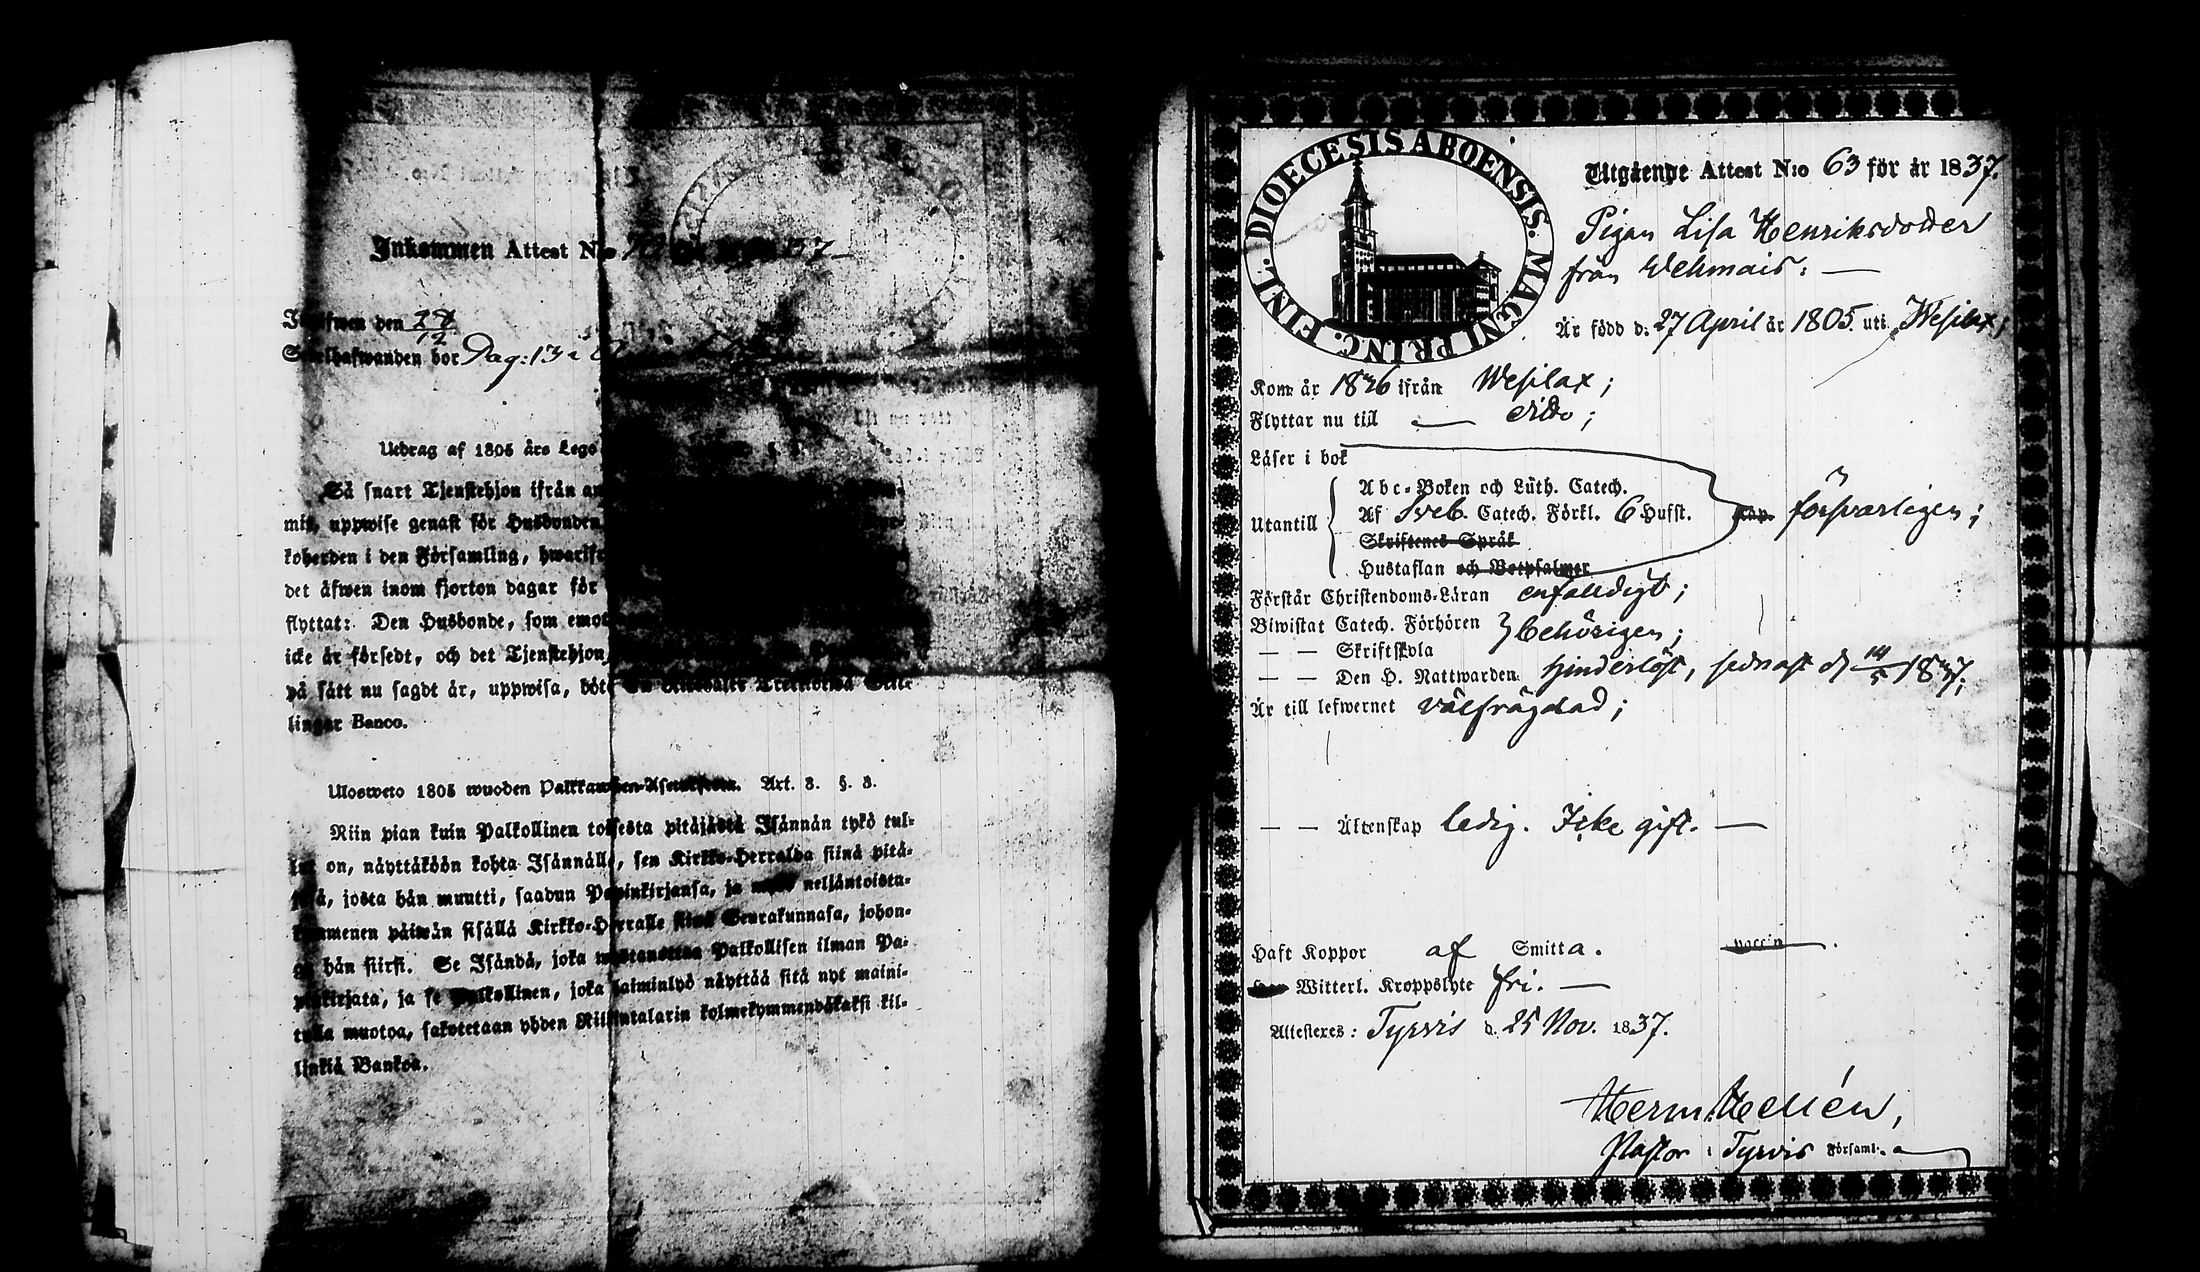 Inkommen Attest N:o 37
den 28/12
bor Pag: 13
Utdrag af 1805 års Lego
Så snart Tjenstehjon ifrån an
mit, uppwise genast för Husbonden
koherden i den Församling, hwarifr
det äfwen inom fjorton dagar för
flyttat: Den Husbonde, som emot
icke är försedt, och det Tjenstehjon,
på sätt nu sagdt är, uppwisa, böte
lingar Banco.
Ulosweto 1805 wuoden Palkkawäen-Asetuksesta. Art. 3. §. 3.
Niin pian kuin Palkollinen toisesta pitäjästä Isännän tykö tul-
lut on, näyttäköön kohta Isännälle, sen Kirkko-Herralda siinä pitä-
jäsä, josta hän muutti, saadun Papinkirjansa, ja myös neljäntoista-
kymmenen päiwän sisällä Kirkko-Herralle siinä Seurakunnasa, johon-
ga hän siirsi. Se Isändä, joka wastanottaa Palkollisen ilman Pa-
pinkirjata, ja se Palkollinen, joka laiminlyö näyttää sitä nyt maini-
tulla muotoa, sakotetaan yhden Riikintalarin kolmekymmendäkaksi kil-
linkiä Bankoa.
FINL. DIOECESIS ABOENSIS. MAGNI PRINC.
Utgående Attest N:o 63 för år 1837.
Pigan Lisa Henriksdotter
från Wehmais: —
Är född d: 27 April år 1805 uti Wesilax;
Kom år 1836 ifrån Wesilax;
Flyttar nu till — dito;
Läser i bok
Abc-Boken och Lüth. Catech.
Utantill Af Sveb. Catech. Förkl. 6 Hufst. Kap. försvarligen;
Skriftenes Språk
Hustaflan och Botpsalmer
Förstår Christendoms-Läran enfaldigt;
Biwistat Catech. Förhören behörigen;
— — Skriftskola
— — Den H. Nattwarden hinderlöst, sednast d 14/5 1837;
Är till lefwernet välfrägdad;
— — Äktenskap ledig. Icke gift. —
Haft Koppor af Smitta. vaccin
Witterl. Kroppslyte fri. —
Attesteres: Tyrvis d. 25 Nov. 1837.
Herm. Hellén,
Pastor i Tyrvis Församl.